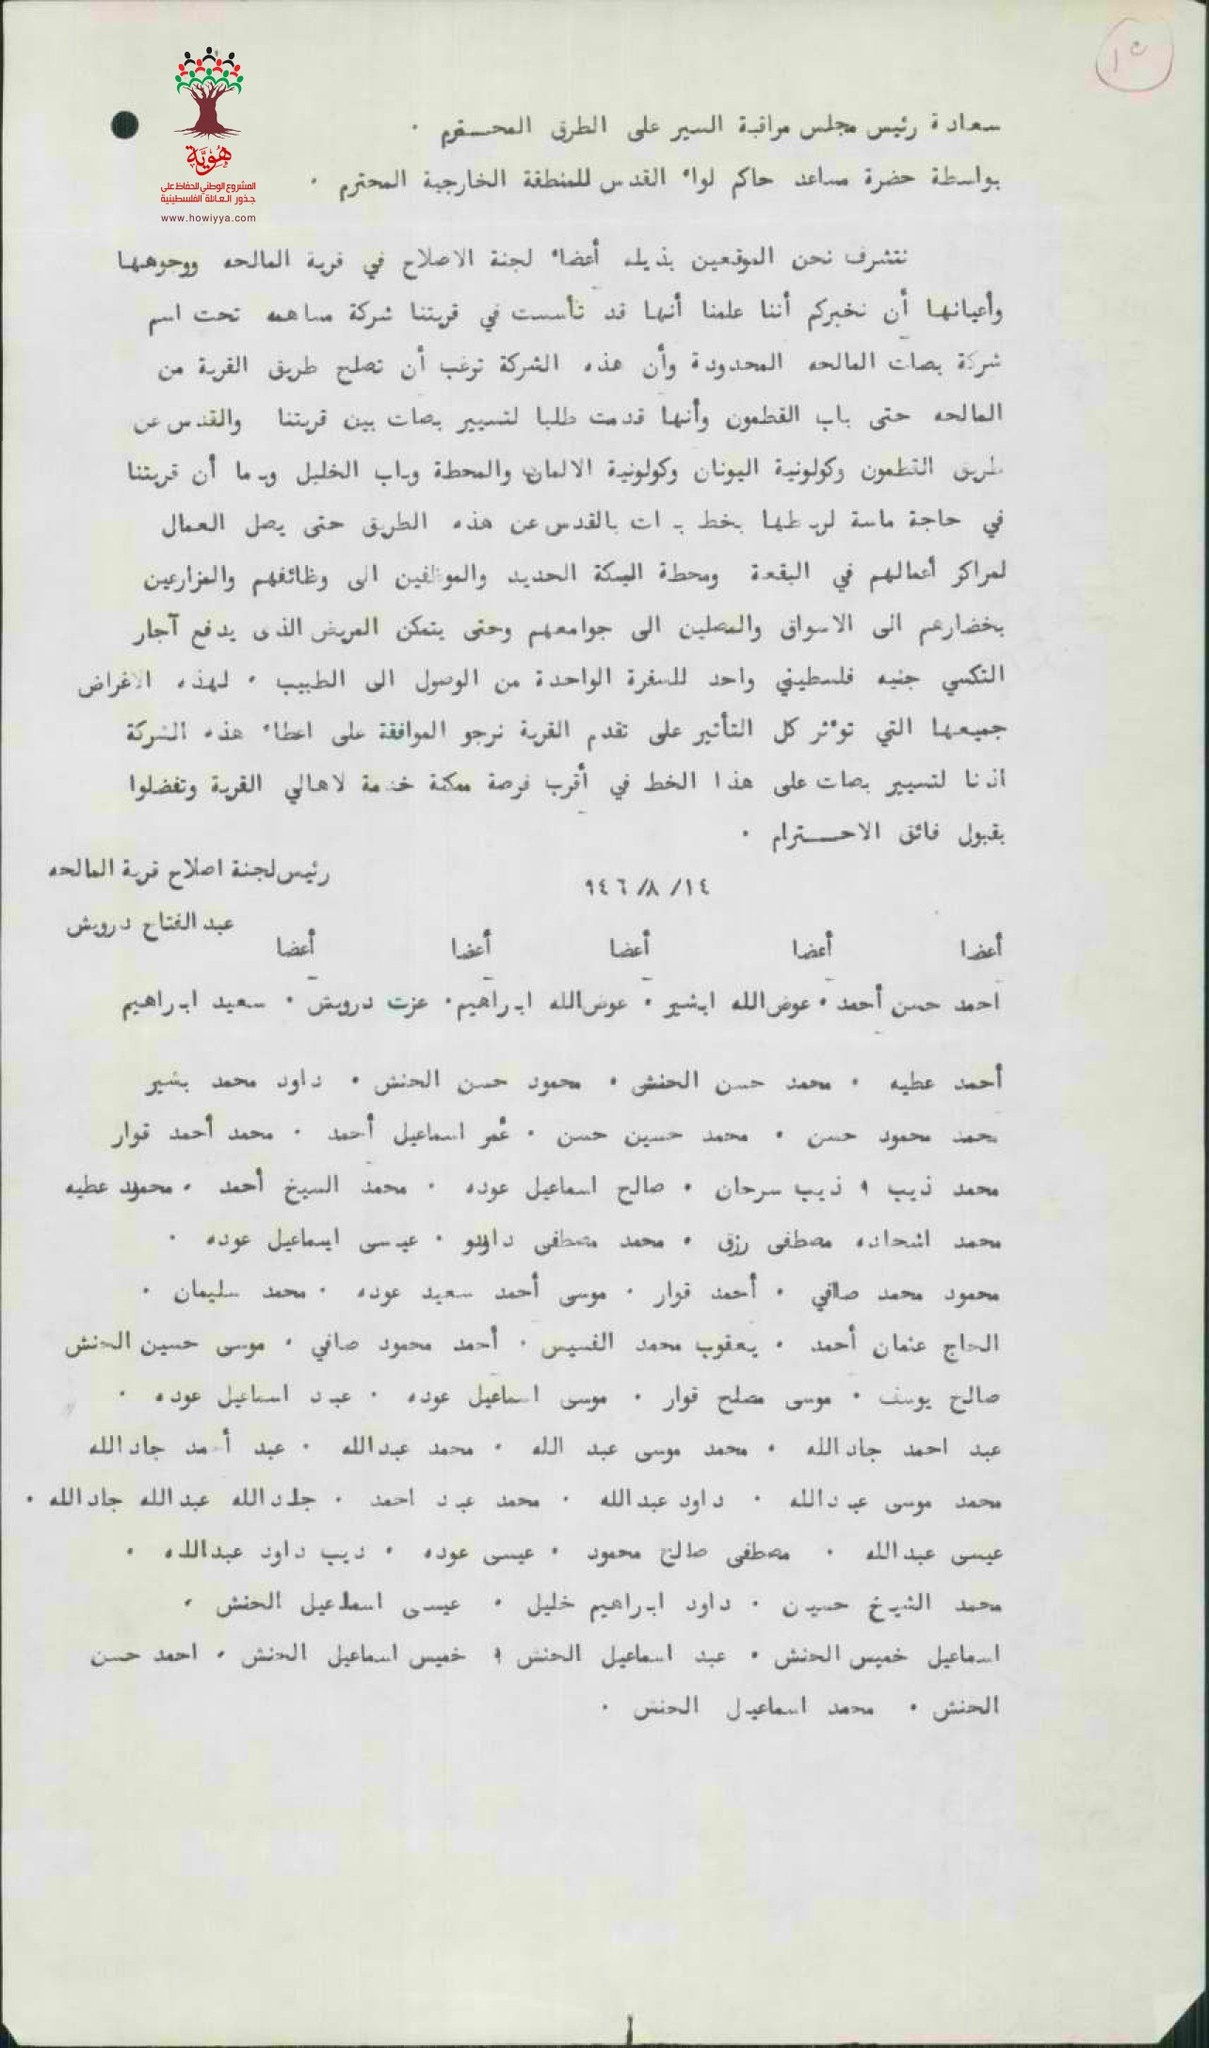 هوية
المشروع الوطني للحفاظ على
جذور العائلة الفلسطينية
www.howiyya.com
سعادة رئيس مجلس مراقبة السير على الطرق المحـترم .
بواسطة حضرة مساعد حاكم لواء القدس للمنطقة الخارجية المحترم .
نتشرف نحن الموقعين بذيله أعضاء لجنة الاصلاح في قرية المالحه ووجوهها
وأعيانها أن نخبركم أننا علمنا أنها قد تأسست في قريتنا شركة مساهمه تحت اسم
شركة بصات المالحه المحدودة وأن هذه الشركة ترغب أن تصلح طريق القرية من
المالحه حتى باب القطمون وأنها قدمت طلبا لتسيير بصات بين قريتنا والقدس عن
طريق القطمون وكولونية اليونان وكولونية الالمان والمحطة وباب الخليل وبما أن قريتنا
في حاجة ماسة لربطها بخط بصات بالقدس عن هذه الطريق حتى يصل العمال
لمراكز أعمالهم في البقعة ومحطة السكة الحديد والموظفين الى وظائفهم والمزارعين
بخضارهم الى الاسواق والمصلين الى جوامعهم وحتى يتمكن المريض الذى يدفع آجار
التكسي جنيه فلسطيني واحد للسفرة الواحدة من الوصول الى الطبيب . لهذه الاغراض
جميعها التي تؤثر كل التأثير على تقدم القرية نرجو الموافقة على اعطاء هذه الشركة
اذنا لتسيير بصات على هذا الخط في أقرب فرصة ممكنة خدمة لاهالي القرية وتفضلوا
بقبول فائق الاحـــترام .
رئيس لجنة اصلاح قرية المالحه
١٤/ ٨/ ٩٤٦
عبد الفتاح درويش
أعضا أعضا أعضا أعضا أعضا
احمد حسن أحمد . عوض الله ابشير . عوض الله ابراهيم . عزت درويش . سعيد ابراهيم
أحمد عطيه . محمد حسن الحنش . محمود حسن الحنش . داود محمد بشير
محمد محمود حسن . محمد حسين حسن . عمر اسماعيل أحمد . محمد أحمد قوار
محمد ذيب و ذيب سرحان . صالح اسماعيل عوده . محمد السيخ أحمد . محمود عطيه
محمد اشحاده مصطفى رزق . محمد مصطفى داود . عيسى اسماعيل عوده .
محمود محمد صافي . أحمد قوار . موسى أحمد سعيد عوده . محمد سليمان .
الحاج عثمان أحمد . يعقوب محمد الفسيس . أحمد محمود صافي . موسى حسين الحنش
صالح يوسف . موسى مصلح قوار . موسى اسماعيل عوده . عبد اسماعيل عوده .
عبد احمد جاد الله . محمد موسى عبد الله . محمد عبد الله . عبد أحمد جاد الله
محمد موسى عبد الله . داود عبد الله . محمد عبد احمد . جاد الله عبد الله جاد الله .
عيسى عبد الله . مصطفى صالح محمود . عيسى عوده . ديب داود عبد الله .
محمد الشيخ حسين . داود ابراهيم خليل . عيسى اسماعيل الحنش .
اسماعيل خميس الحنش . عبد اسماعيل الحنش و خميس اسماعيل الحنش . احمد حسن
الحنش . محمد اسماعيل الحنش .